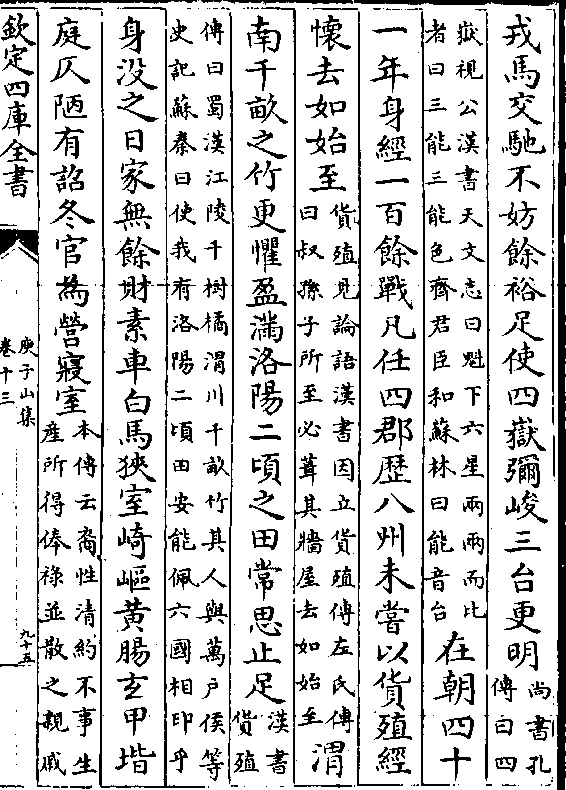 戎馬交馳不妨餘裕足使四嶽彌峻三台更明尚書孔傳曰四
嶽視公漢書天文志曰魁下六星兩兩而比者曰三能三能色齊君臣和蘇林曰能音台在朝四十
一年身經一百餘戰凡任四郡歷八州未嘗以貨殖經
懷去如始至貨殖見論語漢書因立貨殖傳左氏傳曰叔孫子所至必葺其牆屋去如始至渭
南千畝之竹更懼盈滿洛陽二頃之田常思止足漢書貨殖
傳曰蜀漢江陵千樹橘渭川千畝竹其人與萬戶侯等史記蘇秦曰使我有洛陽二頃田安能佩六國相印乎
身没之日家無餘財素車白馬狹室崎嶇黄腸玄甲堦
庭仄陋有詔冬官為營寢室本傳云裔性清約不事生產所得俸祿並散之親戚
欽定四庫全書
庾子山集
卷十三
九十五